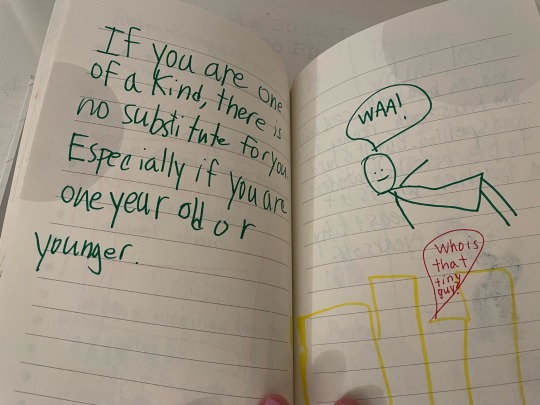 If you are one
of a kind, there is
no substitute for you
Especially if you are
one year old or
younger.
WAA!
Who is
that
tiny
guy?